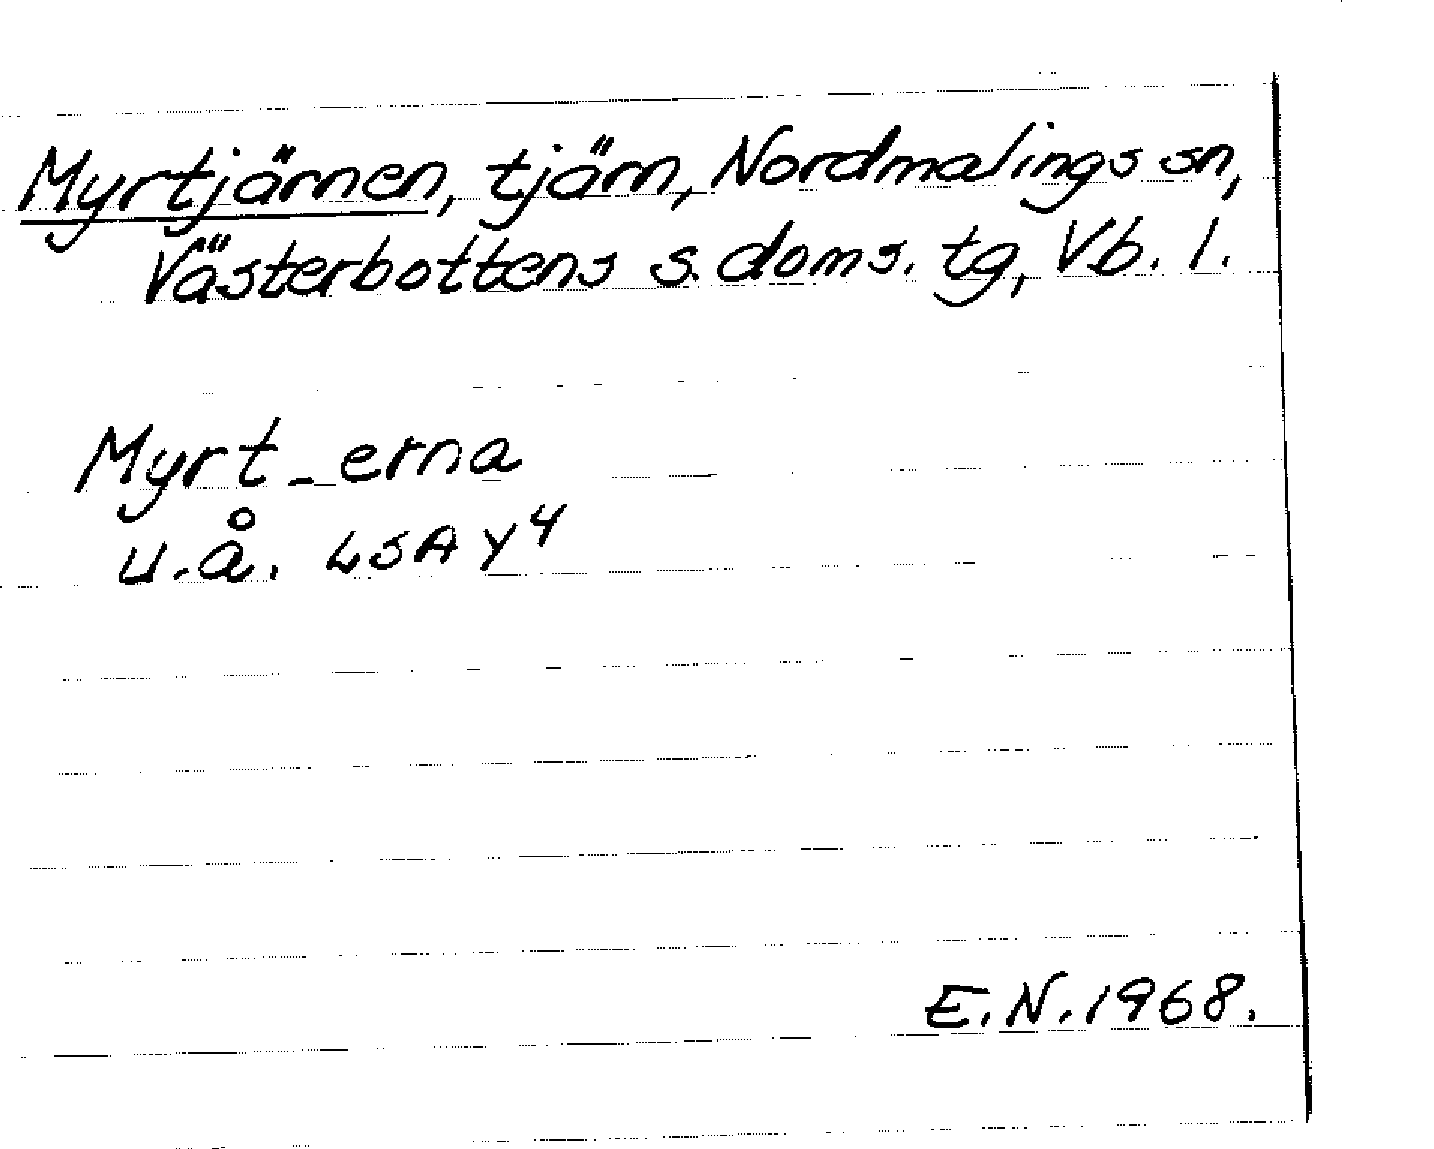 Myrtjärnen, tjärn, Nordmalings sn,
Västerbottens s. doms. tg, Vb. l.
Myrt_erna
u.å. LSA Y4
E.N. 1968.